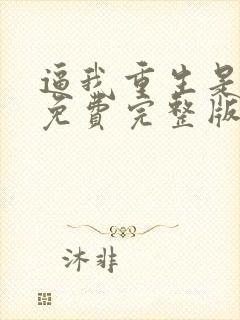 逼我重生是
免费完整版
沐非